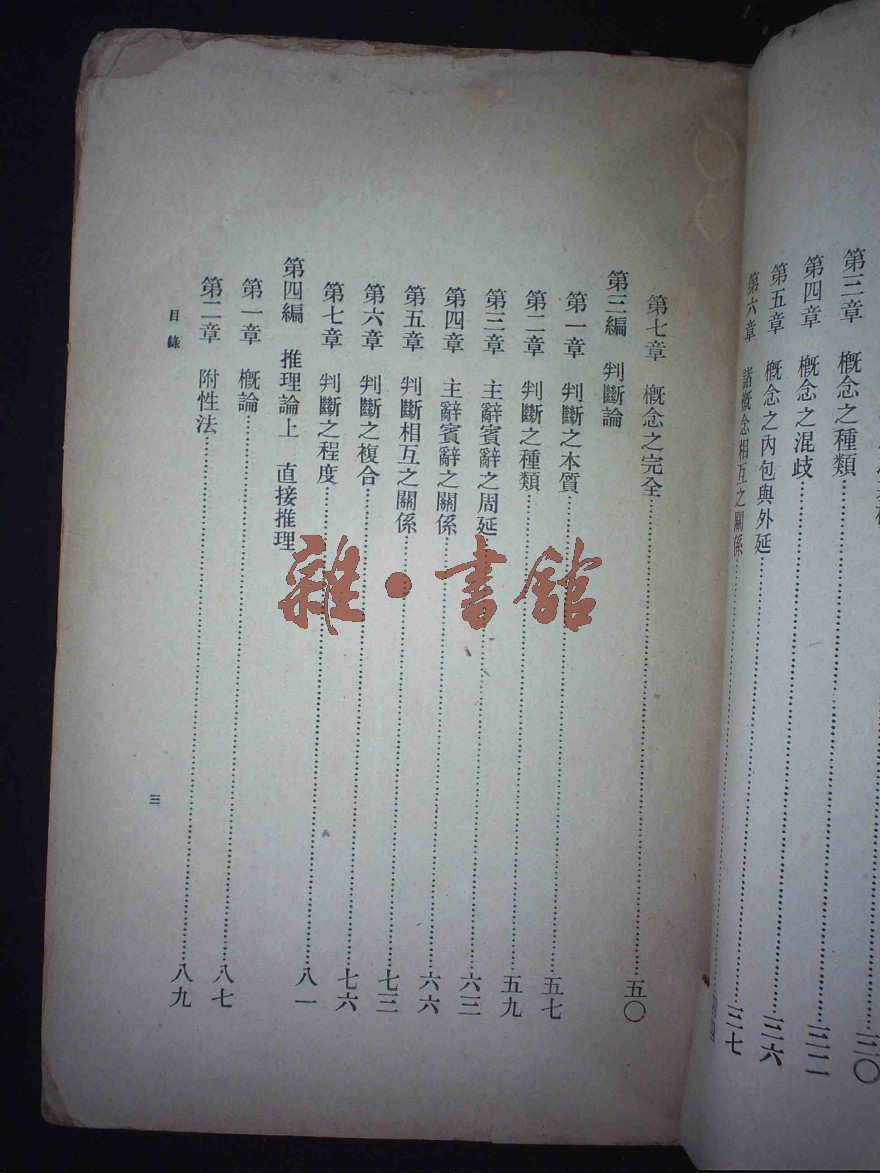 三〇
第三章 槪念之種類……三二
第四章 槪念之混歧……三六
第五章 槪念之內包與外延……三七
第六章 諸槪念相互之關係……四四
第七章 槪念之完全……五〇
第三編 判斷論
第一章 判斷之本質……五七
第二章 判斷之種類……五九
第三章 主辭賓辭之周延……六三
第四章 主辭賓辭之關係……六六
第五章 判斷相互之關係……七三
第六章 判斷之複合……七六
第七章 判斷之程度……八一
第四編 推理論上 直接推理
第一章 槪論……八七
第二章 附性法……八九
目錄
三
雜·書館